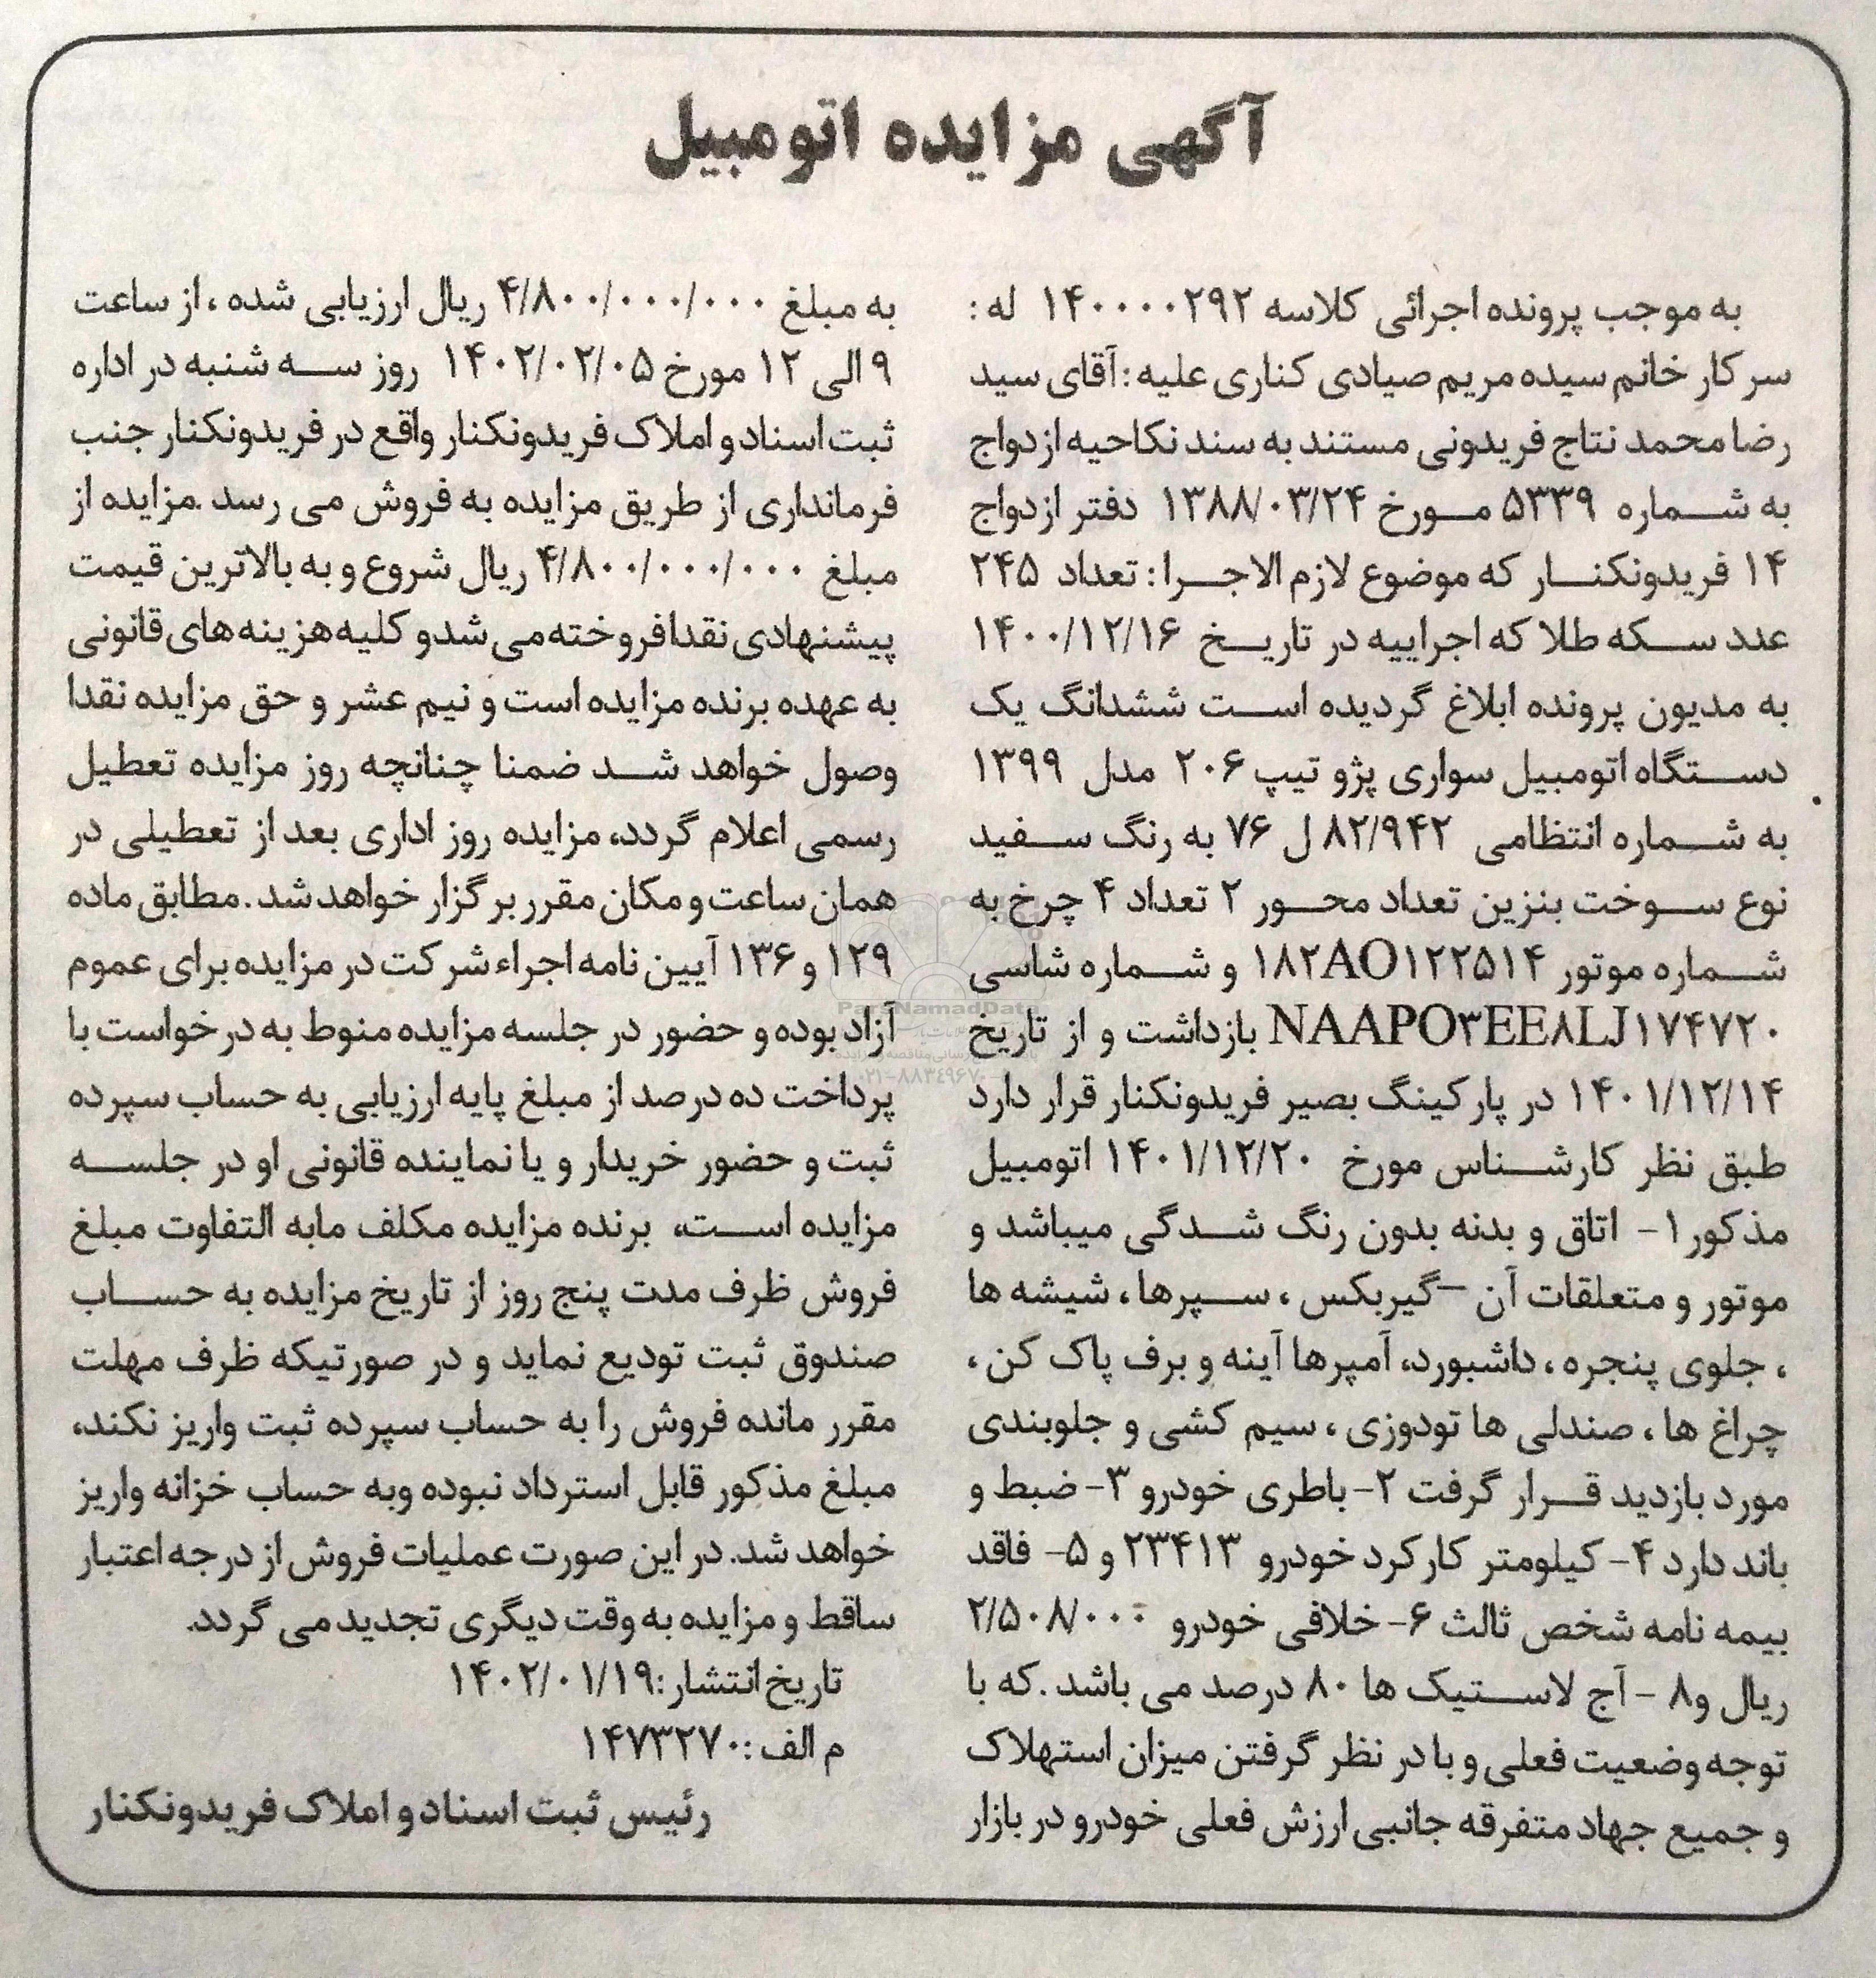 آگهی مزایده اتومبیل
به موجب پرونده اجرائی کلاسه ۱۴۰۰۰۰۲۹۲ له :
سرکار خانم سیده مریم صیادی کناری علیه : آقای سید
رضا محمد نتاج فریدونی مستند به سند نکاحیه ازدواج
به شماره ۵۳۳۹ مورخ ۱۳۸۸/۰۳/۲۴ دفتر ازدواج
۱۴ فریدونکنار که موضوع لازم الاجرا : تعداد ۲۴۵
عدد سکه طلا که اجراییه در تاریخ ۱۴۰۰/۱۲/۱۶
به مدیون پرونده ابلاغ گردیده است ششدانگ یک
دستگاه اتومبیل سواری پژو تیپ ۲۰۶ مدل ۱۳۹۹
به شماره انتظامی ۸۲/۹۴۲ ل ۷۶ به رنگ سفید
نوع سوخت بنزین تعداد محور ۲ تعداد ۴ چرخ به
شماره موتور ۱۸۲AO۱۲۲۵۱۴ و شماره شاسی
NAAPO۳EE۸LJ۱۷۴۷۲۰ بازداشت و از تاریخ
۱۴۰۱/۱۲/۱۴ در پارکینگ بصیر فریدونکنار قرار دارد
طبق نظر کارشناس مورخ ۱۴۰۱/۱۲/۲۰ اتومبیل
مذکور ۱- اتاق و بدنه بدون رنگ شدگی میباشد و
موتور و متعلقات آن –گیربکس ، سپرها ، شیشه ها
، جلوی پنجره ، داشبورد، آمپرها آینه و برف پاک کن ،
چراغ ها ، صندلی ها تودوزی ، سیم کشی و جلوبندی
مورد بازدید قرار گرفت ۲- باطری خودرو ۳- ضبط و
باند دارد ۴- کیلومتر کارکرد خودرو ۲۳۴۱۳ و ۵- فاقد
بیمه نامه شخص ثالث ۶- خلافی خودرو ۲/۵۰۸/۰۰۰
ریال و۸ - آج لاستیک ها ۸۰ درصد می باشد .که با
توجه وضعیت فعلی و با در نظر گرفتن میزان استهلاک
و جمیع جهاد متفرقه جانبی ارزش فعلی خودرو در بازار
به مبلغ ۴/۸۰۰/۰۰۰/۰۰۰ ریال ارزیابی شده ، از ساعت
۹ الی ۱۲ مورخ ۱۴۰۲/۰۲/۰۵ روز سه شنبه در اداره
ثبت اسناد و املاک فریدونکنار واقع در فریدونکنار جنب
فرمانداری از طریق مزایده به فروش می رسد .مزایده از
مبلغ ۴/۸۰۰/۰۰۰/۰۰۰ ریال شروع و به بالاترین قیمت
پیشنهادی نقدا فروخته می شدو کلیه هزینه های قانونی
به عهده برنده مزایده است و نیم عشر و حق مزایده نقدا
وصول خواهد شد ضمنا چنانچه روز مزایده تعطیل
رسمی اعلام گردد، مزایده روز اداری بعد از تعطیلی در
همان ساعت و مکان مقرر برگزار خواهد شد . مطابق ماده
۱۲۹ و ۱۳۶ آیین نامه اجراء شرکت در مزایده برای عموم
آزاد بوده و حضور در جلسه مزایده منوط به درخواست با
پرداخت ده درصد از مبلغ پایه ارزیابی به حساب سپرده
ثبت و حضور خریدار و یا نماینده قانونی او در جلسه
مزایده است، برنده مزایده مکلف مابه التفاوت مبلغ
فروش ظرف مدت پنج روز از تاریخ مزایده به حساب
صندوق ثبت تودیع نماید و در صورتیکه ظرف مهلت
مقرر مانده فروش را به حساب سپرده ثبت واریز نکند،
مبلغ مذکور قابل استرداد نبوده وبه حساب خزانه واریز
خواهد شد. در این صورت عملیات فروش از درجه اعتبار
ساقط و مزایده به وقت دیگری تجدید می گردد.
تاریخ انتشار :۱۴۰۲/۰۱/۱۹
م الف :۱۴۷۳۲۷۰
رئیس ثبت اسناد و املاک فریدونکنار
ParsNamadData
۰۲۱-۸۸۳۴۹۶۷۰